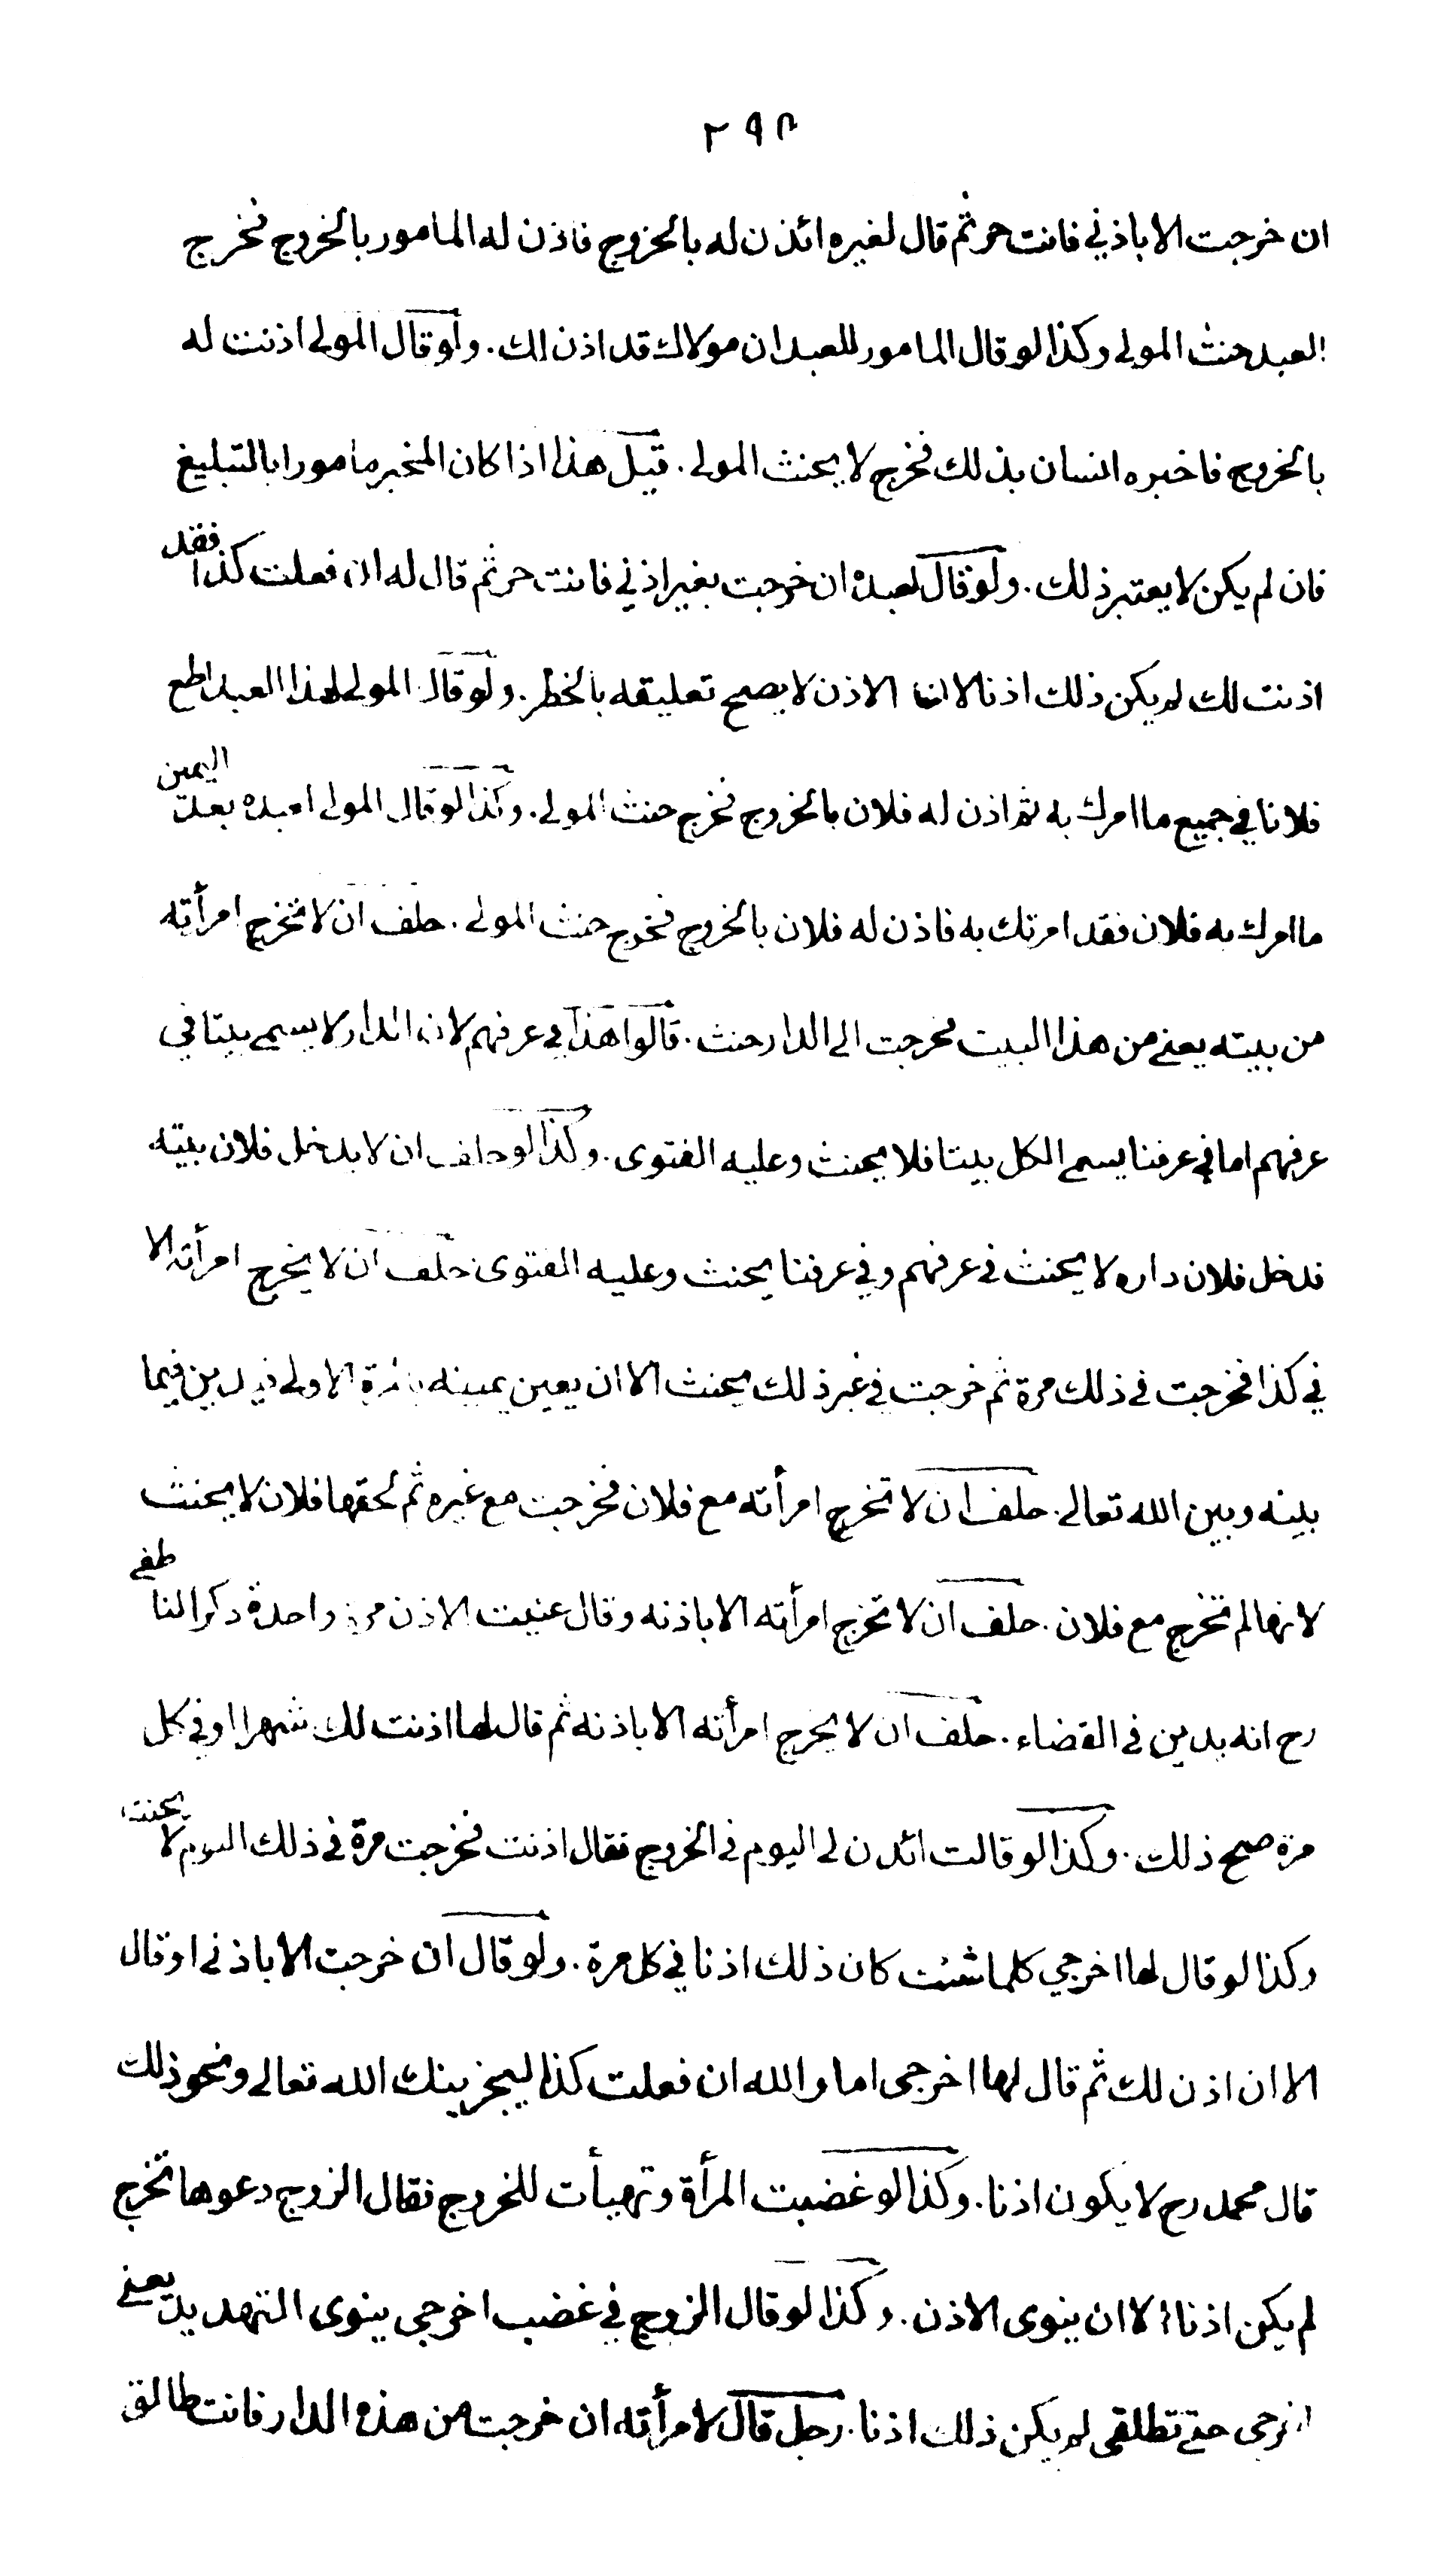 ٢٩٨
ان خرجت الا باذني فانت حر ثم قال لغيره ائذن له بالخروج فاذن له المامور بالخروج فخرج
العبد حنث المولى وكذا لو قال المامور للعبد ان مولاك قد اذن لك. ولو قال المولى اذنت له
بالخروج فاخبره انسان بذلك فخرج لا يحنث المولى. قيل هذا اذا كان المخبر مامورا بالتبليغ
فان لم يكن لا يعتبر ذلك. ولو قال لعبده ان خرجت بغير اذني فانت حر ثم قال له ان فعلت كذا فقد
اذنت لك لم يكن ذلك اذنا لان الاذن لا يصح تعليقه بالخطر. ولو قال المولى لهذا العبد اطع
فلانا في جميع ما امرك به ثم اذن له فلان بالخروج فخرج حنث المولى. وكذا لو قال المولى لعبده بعد اليمين
ما امرك به فلان فقد امرتك به فاذن له فلان بالخروج فخرج حنث المولى. حلف ان لا تخرج امرأته
من بيته يعني من هذا البيت فخرجت الى الدار حنث. قالوا هذا في عرفهم لان الدار لا يسمى بيتا في
عرفهم اما في عرفنا يسمى الكل بيتا فلا يحنث وعليه الفتوى. وكذا لو حلف ان لا يدخل فلان بيته
فدخل فلان داره لا يحنث في عرفهم وفي عرفنا يحنث وعليه الفتوى. حلف ان لا يخرج امرأته الا
في كذا فخرجت في ذلك مرة ثم خرجت في غير ذلك يحنث الا ان يعين يمينه بالمرة الاولى فيدين فيما
بينه وبين الله تعالى. حلف ان لا تخرج امرأته مع فلان فخرجت مع غيره ثم لحقها فلان لا يحنث
لانها لم تخرج مع فلان. حلف ان لا تخرج امرأته الا باذنه وقال عنيت الاذن مرة واحدة ذكر الناطفي
رح انه يدين في القضاء. حلف ان لا يخرج امرأته الا باذنه ثم قال لها اذنت لك شهرا او في كل
مرة صح ذلك. وكذا لو قالت ائذن لي اليوم في الخروج فقال اذنت فخرجت مرة في ذلك اليوم لا يحنث
وكذا لو قال لها اخرجي كلما شئت كان ذلك اذنا في كل مرة. ولو قال ان خرجت الا باذني او قال
الا ان اذن لك ثم قال لها اخرجي اما والله ان فعلت كذا ليجزينك الله تعالى ونحو ذلك
قال محمد رح لا يكون اذنا. وكذا لو غضبت المرأة وتهيأت للخروج فقال الزوج دعوها تخرج
لم يكن اذنا الا ان ينوى الاذن. وكذا لو قال الزوج في غضب اخرجي ينوى التهديد يعني
اخرجي حتى تطلقي لم يكن ذلك اذنا. رجل قال لامرأته ان خرجت من هذه الدار فانت طالق